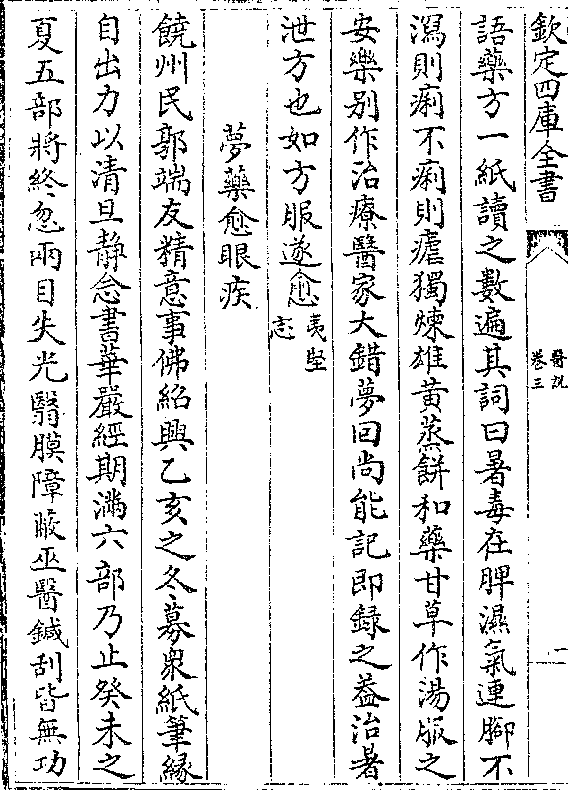 欽定四庫全書
醫説
卷三
一
語藥方一紙讀之數遍其詞曰暑毒在脾濕氣連腳不
瀉則痢不痢則瘧獨煉雄黄蒸餅和藥甘草作湯服之
安樂别作治療醫家大錯夢回尚能記即錄之葢治暑
泄方也如方服遂愈夷堅志
夢藥愈眼疾
饒州民郭端友精意事佛紹興乙亥之冬募衆紙筆緣
自出力以清旦静念書華嚴經期滿六部乃止癸未之
夏五部將終忽兩目失光翳膜障蔽巫醫鍼刮皆無功